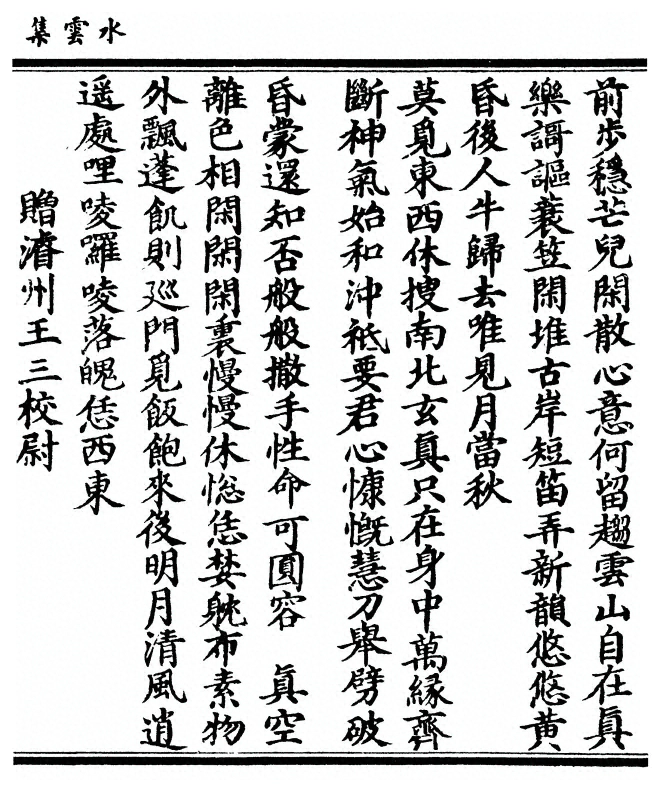 水雲集
前步穩芒兒閑散心意何留趨雲山自在真
樂謌謳蓑笠閑堆古岸短笛弄新韻悠悠黄
昏後人牛歸去唯見月當秋
莫覓東西休搜南北玄真只在身中萬緣齊
斷神氣始和沖祗要君心慷慨慧刀舉劈破
昏蒙還知否般般撒手性命可圓容　真空
離色相閑閑閑裏慢慢休惚恁婪躭布素物
外飄蓬飢則廵門覓飯飽來後明月清風逍
遥處哩唛囉唛落魄恁西東
贈濬州王三校尉